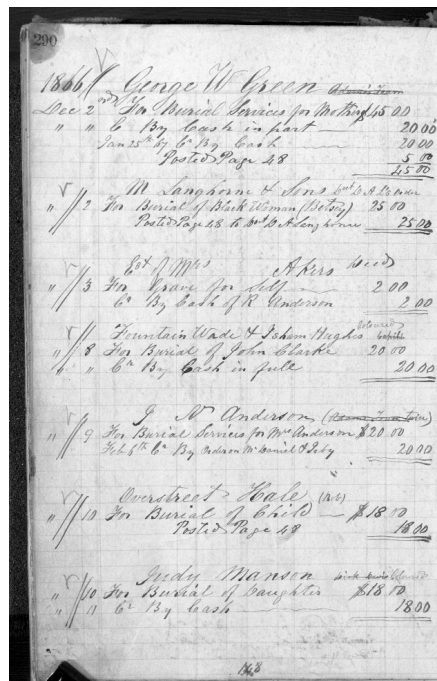 290
1866 George W Green
Dec 2 For Burial Services for Mother $45 00
" " Cr By Cash in part — 20 00
Jan 25th By Cr By Cash 20 00
Posted Page 48 5 00
45 00
M Langhorne & Sons
" 2 For Burial of Black Woman (Betsy) 25 00
Posted Page 48 to A Langhorne 25 00
Est of Mrs Akers
" 3 For Grave for Self — 2.00
Cr By Cash of R Anderson 2 00
Fountain Wade & Isham Hughes Coloured
" 8 For Burial of John Clarke 20 00
" " Cr By Cash in full 20 00
J N Anderson
" 9 For Burial Services for Mrs Anderson $20 00
Feb 6th Cr By Order on McDaniel & Irby 20 00
Overstreet Hale
" 10 For Burial of Child — $18 00
Posted Page 48 18 00
Judy Manson Colored
" 10 For Burial of Daughter $18 00
" 11 Cr By Cash — 18 00
148